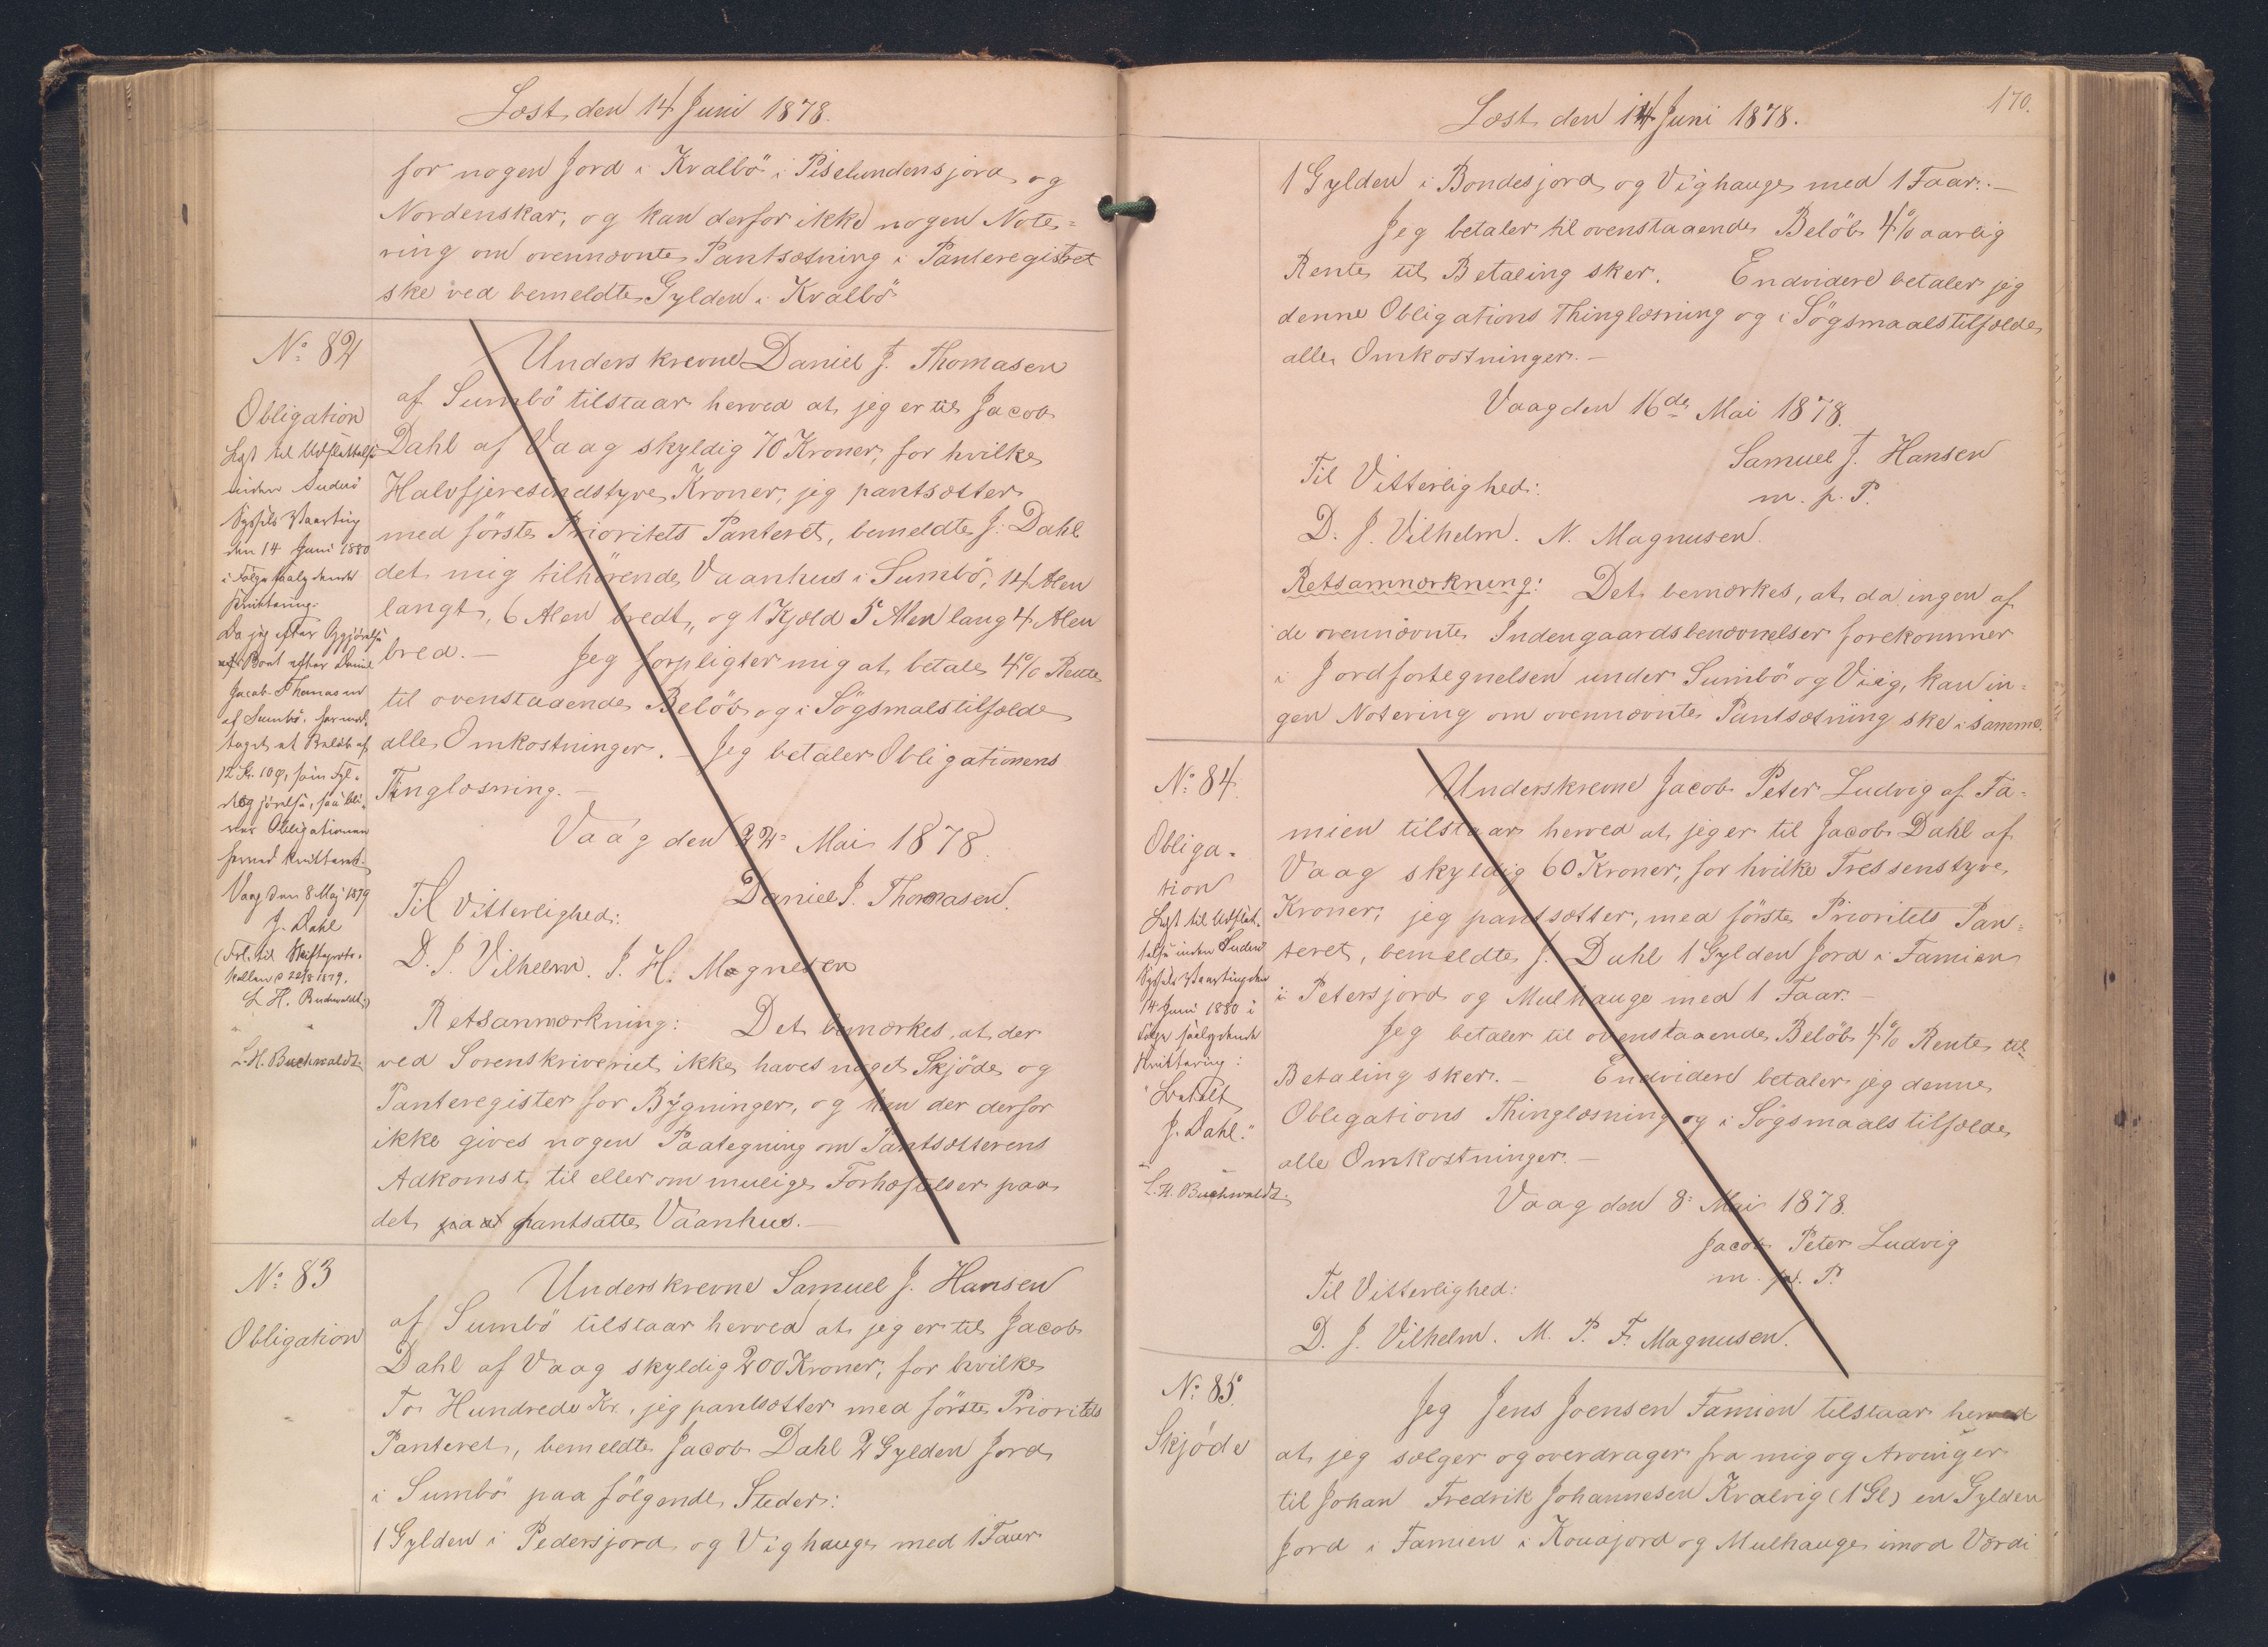 Læst den 14 Juni 1878.
for nogen Jord i Kvalbö i Piselundensjord og
Nordenskar, og kan derfor ikke nogen Note=
ring om ovennævnte Pantsætning i Panteregistret
ske ved bemeldte Gylden i Kvalbö
No 82
Obligation
Læst til Udslettelse
inden Suderö
Syssels Vaarting
den 14 Juni 1880
i Følge saalydende
Kvittering:
Da jeg efter Opgjörelse
af Boet efter Daniel
Jacob Thomasen
af Sumbö, har mod-
taget et Belöb af
12 Kr. 10 Ø, som Fyl-
destgjörelse, saa bli-
ver Obligationen
herved kvitteret.
Vaag den 8 Maj 1879
J. Dahl
(Frl. til Skifteproto-
kollen d 22/8 1879.
L. H. Buchwaldt.)
L. H. Buchwaldt.
Underskrevne Daniel J. Thomasen
af Sumbö tilstaar herved at jeg er til Jacob
Dahl af Vaag skyldig 70 Kroner, for hvilke
Halvfjeresindstyve Kroner, jeg pantsætter
med förste Prioritets Panteret, bemeldte J. Dahl
det mig tilhörende Vaanhus i Sumbö, 14 Alen
langt, 6 Alen bredt, og 1 Kjæld 5 Alen lang 4 Alen
bred. – Jeg forpligter mig at betale 4% Rente
til ovenstaaende Belöb og i Sögsmalstilfælde
alle Omkostninger. – Jeg betaler Obligationens
Tinglæsning. –
Vaag den 22= Mai 1878.
Daniel J. Thomasen.
Til Vitterlighed:
D. J. Vilhelm. J. H. Magnusen
Retsanmærkning: Det bemærkes, at der
ved Sorenskriveriet ikke haves noget Skjöde og
Panteregister for Bygninger, og kan der derfor
ikke gives nogen Paategning om Pantsætterens
Adkomst til eller om mulige Forhæftelser paa
det pantsatte Vaanhus. –
No 83
Obligation
Underskrevne Samuel J. Hansen
af Sumbö tilstaar herved at jeg er til Jacob
Dahl af Vaag skyldig 200 Kroner, for hvilke
To Hundrede Kr., jeg pantsætter med förste Prioritets
Panteret, bemeldte Jacob Dahl 2 Gylden Jord
i Sumbö paa fölgende Steder:
1 Gylden i Pedersjord og Vighauge med 1 Faar
170.
Læst den 14 Juni 1878.
1 Gylden i Bondesjord og Vighauge med 1 Faar. –
Jeg betaler til ovenstaaende Belöb 4% aarlig
Rente til Betaling sker. Endvidere betaler jeg
denne Obligations Thinglæsning og i Sögsmaalstilfælde
alle Omkostninger. –
Vaag den 16de Mai 1878.
Samuel J. Hansen
m. p. P.
Til Vitterlighed:
D. J. Vilhelm. N. Magnusen.
Retsanmærkning: Det bemærkes, at da ingen af
de ovennævnte Indengaardsbenævnelser forekommer
i Jordfortegnelsen under Sumbö og Viig, kan in=
gen Notering om ovennævnte Pantsætning ske i samme.
No 84.
Obliga-
tion
Læst til Udslet-
telse inden Suderö
Syssels Vaarting den
14 Juni 1880 i
Følge saalydende
Kvittering:
"Betalt
J. Dahl."
L. H. Buchwaldt.
Underskrevne Jacob Peter Ludvig af Fa=
mien tilstaar herved at jeg er til Jacob Dahl af
Vaag skyldig 60 Kroner, for hvilke Tressenstyve
Kroner, jeg pantsætter, med förste Prioritets Pan=
teret, bemeldte J. Dahl 1 Gylden Jord i Famien
i Petersjord og Mulhauge med 1 Faar. –
Jeg betaler til ovenstaaende Belöb 4% Rente til
Betaling sker. – Endvidere betaler jeg denne
Obligations Thinglæsning og i Sögsmaalstilfælde
alle Omkostninger. –
Vaag den 8= Mai 1878.
Jacob Peter Ludvig
m. p. P.
Til Vitterlighed:
D. J. Vilhelm. M. P. F. Magnusen.
No 85.
Skjöde
Jeg Jens Joensen Famien tilstaar herved
at jeg sælger og overdrager fra mig og Arvinger
til Johan Fredrik Johannesen Kvalvig (1 Gl) en Gylden
Jord i Famien i Kouajord og Mulhauge imod Værdi